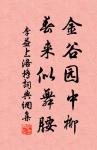 金谷园中柳
春来似舞腰
李益上洛桥词典网集